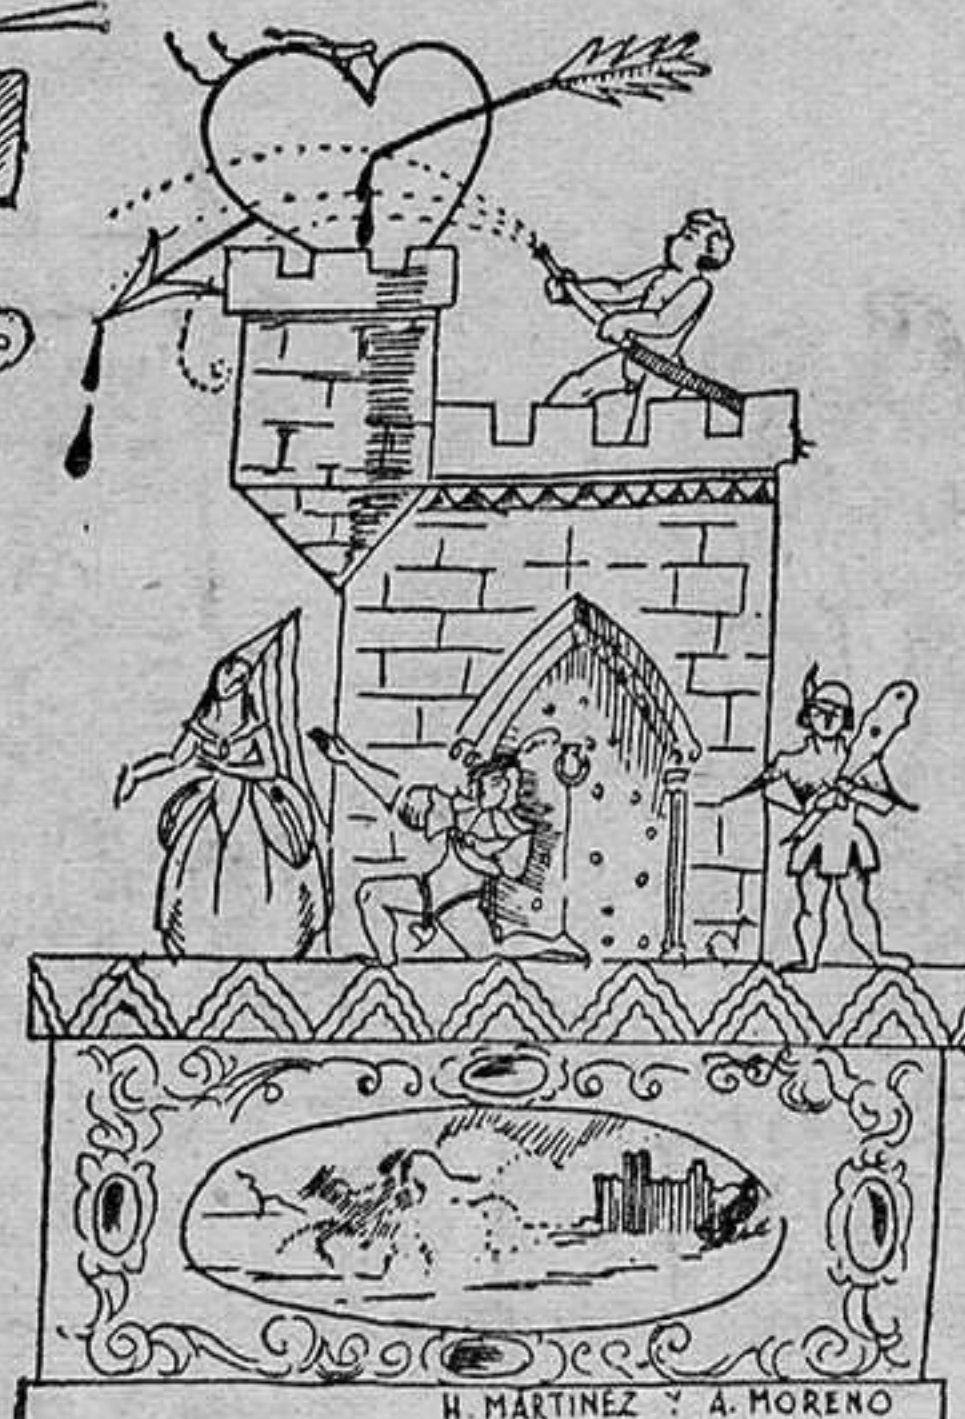 H. MARTINEZ Y A. MORENO